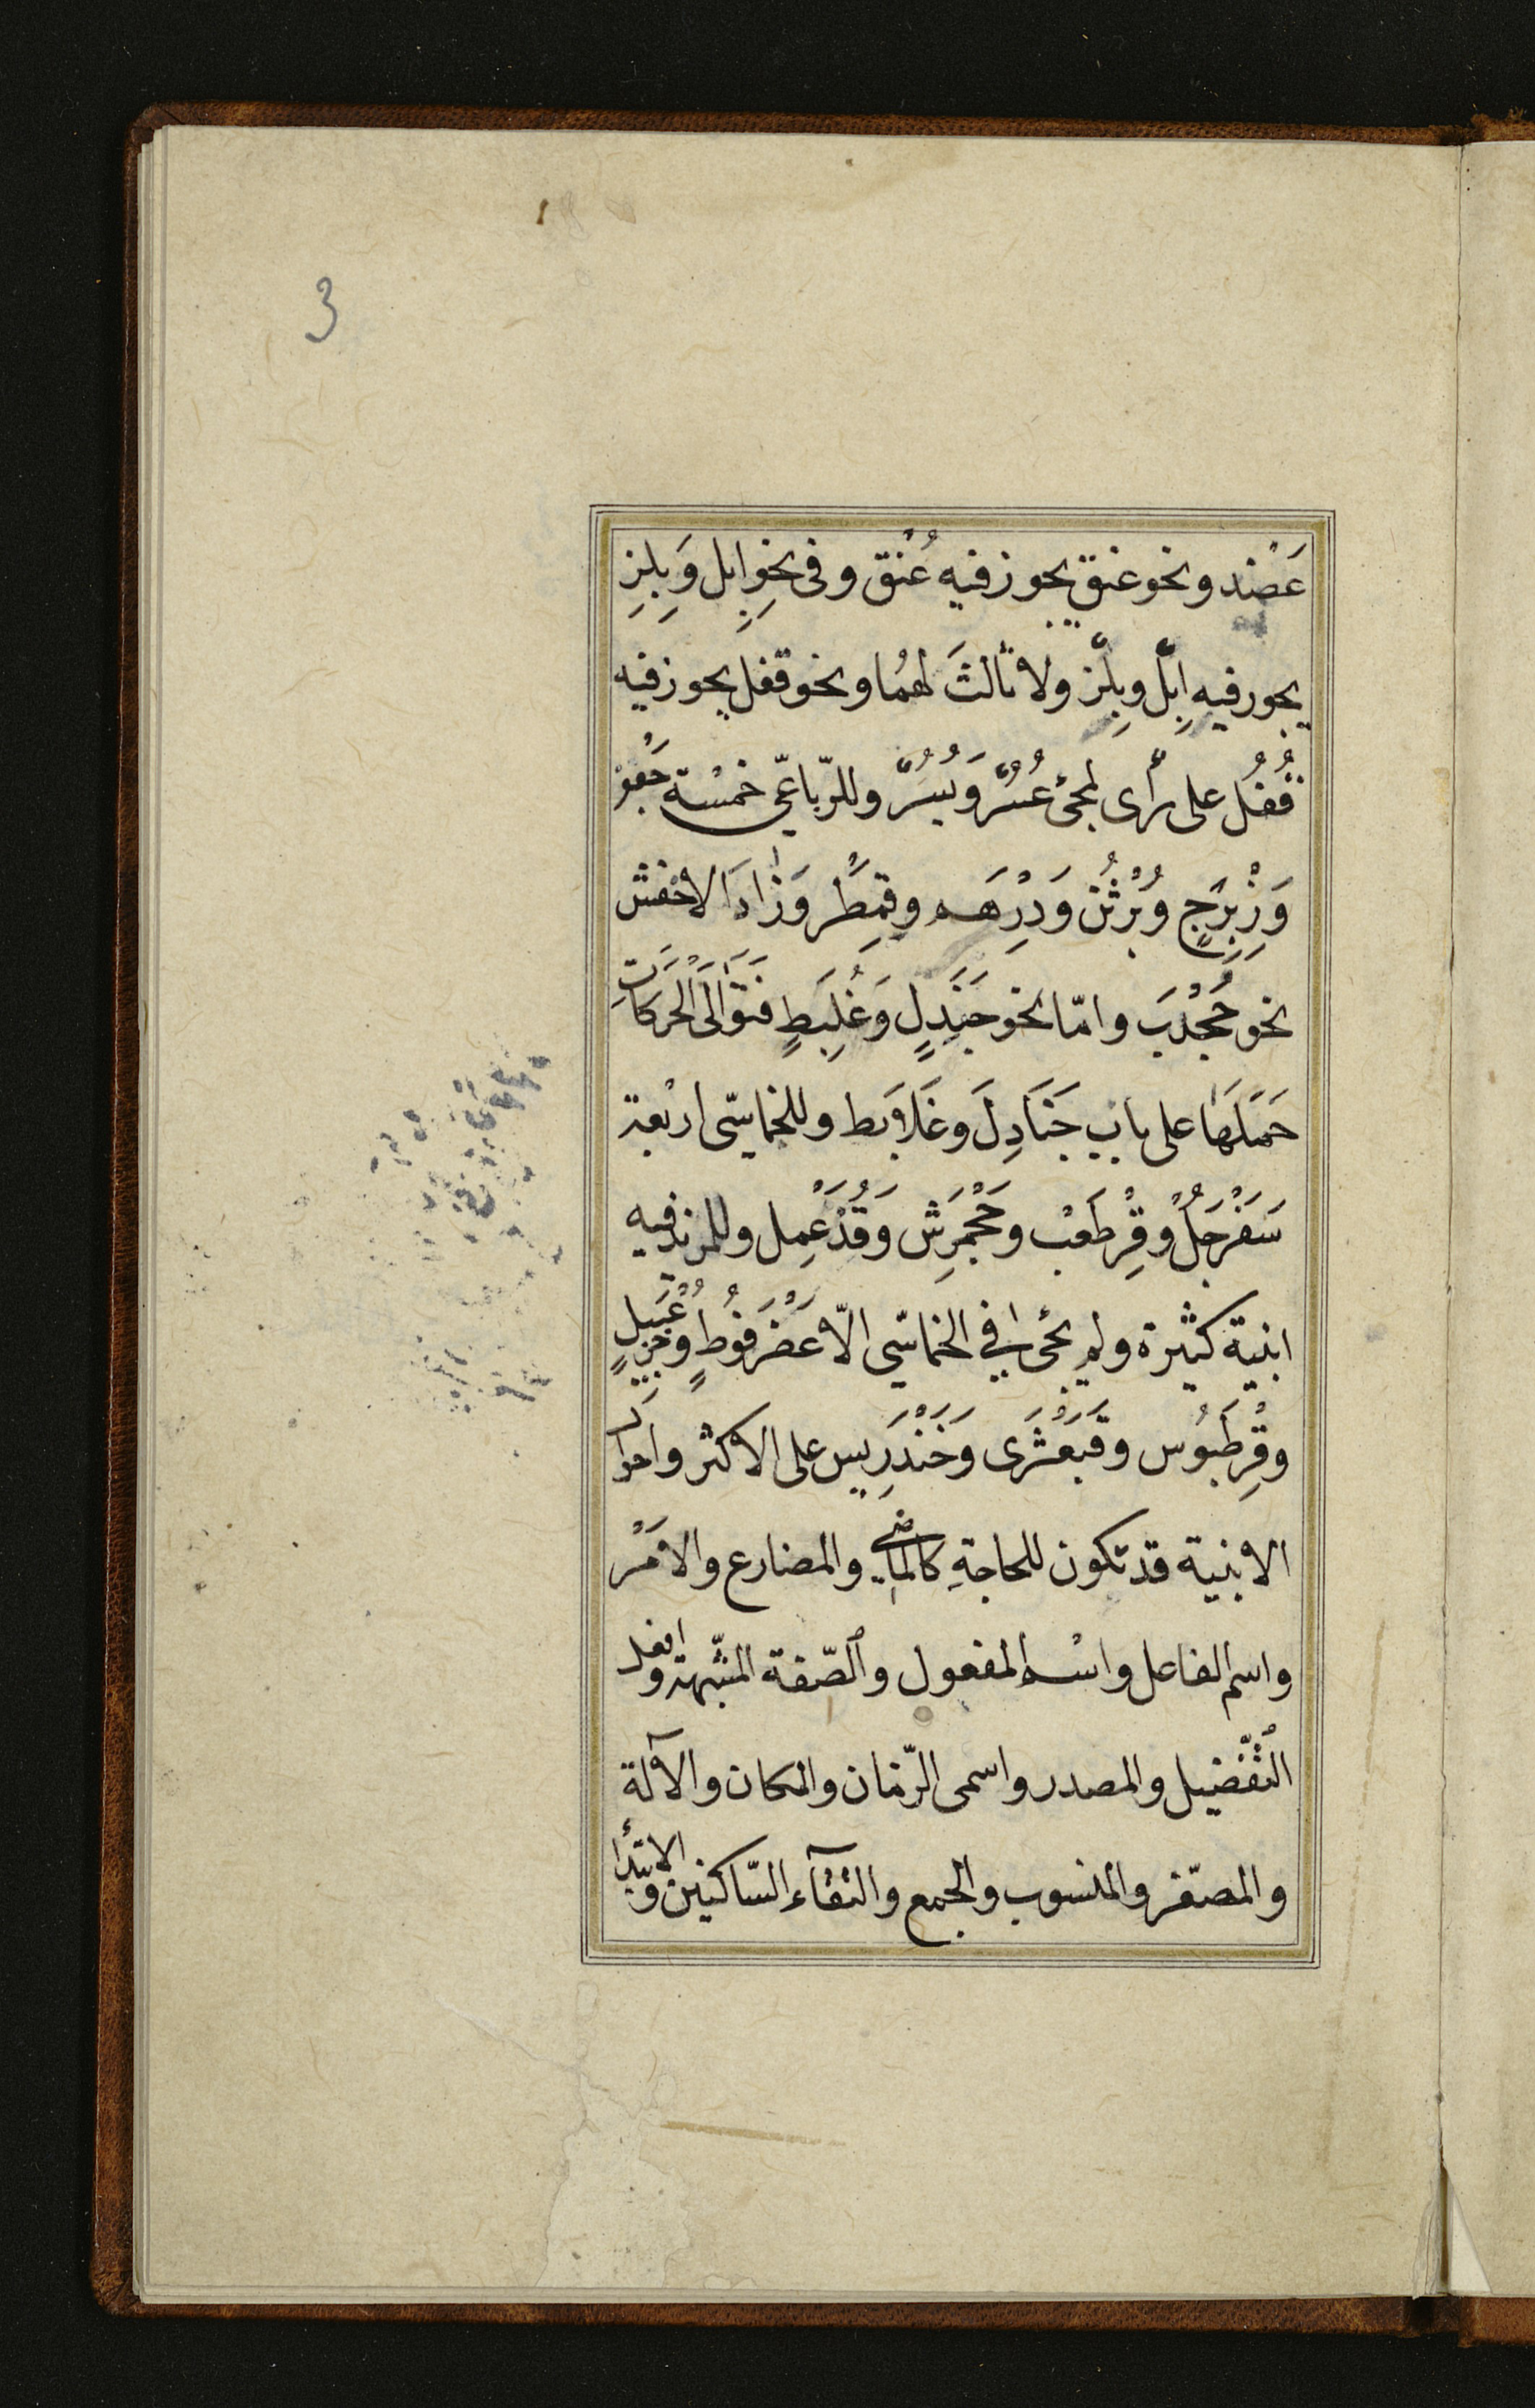 3
عَضْد ونحو عنق يجوز فيه عُنْق وفى نحوِ اِبِل وَبِلِزِ
يجور فيهِ اِبْل وبِلْز ولا ثالثَ لهُما ونحو قفل يجوز فيه
قُفُل على رأى لمجئ عُسُر وَيُسُر وللرّباعىّ خمْسْة جَعْفر
وَزِبْرِجٍ وَبُرْثُن وَدِرْهَم وقِمَطْر وَزَادَ الاخْفش
نحو جُحْدَب وامّا نحو جَنَدِلٍ وَعُلَبِطٍ فتَوَالَى الْحَرَكَاتِ
حَمَلَهَا على بابِ جَنَادِلَ وَعَلابَط وللخماسّى اربْعة
سَفَرْجَلُ وقِرْطَعْب وجَحْمَرِش وَقُذَعْمِل وللمزيد فيه
ابنية كثيرة ولم يجئ فى الخماسّى الاّ عَضْرَفُوطٍ وخُزَعْبِيلٍ
وقِرْطَبُوس وقَبَعْثَرَى وَخَنْدَرِيس على الاكثر واحوال
الابنية قد تكون للحاجةِ كالماضى والمضارع والامَرْ
واسم الفاعل واسْم المفعول والصّفة المشّبهة وافعل
التّفْضيل والمصدر واسمى الزّمان والمكان والآلة
والمصّغر والمنسوب والجمع والتقآء السّاكنين والابتدأ